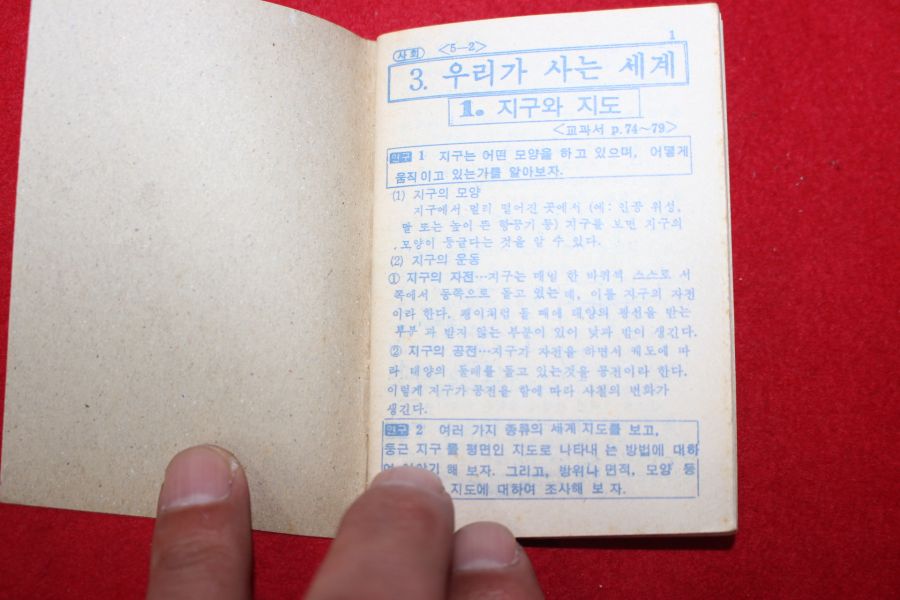 사회 <5-2> 1
3. 우리가 사는 세계
1. 지구와 지도
<교과서 p.74~79>
연구 1 지구는 어떤 모양을 하고 있으며, 어떻게
움직이고 있는가를 알아보자.
(1) 지구의 모양
지구에서 멀리 떨어진 곳에서 (예: 인공 위성,
달 또는 높이 뜬 항공기 등) 지구를 보면 지구의
모양이 둥글다는 것을 알 수 있다.
(2) 지구의 운동
① 지구의 자전…지구는 매일 한 바퀴씩 스스로 서
쪽에서 동쪽으로 돌고 있는 데, 이를 지구의 자전
이라 한다. 팽이처럼 돌 때에 태양의 광선을 받는
부분과 받지 않는 부분이 있어 낮과 밤이 생긴다.
② 지구의 공전…지구가 자전을 하면서 궤도에 따
라 태양의 둘레를 돌고 있는것을 공전이라 한다.
이렇게 지구가 공전을 함에 따라 사철의 변화가
생긴다.
연구 2 여러 가지 종류의 세계 지도를 보고,
둥근 지구를 평면인 지도로 나타내 는 방법에 대하
여 해 보자. 그리고, 방위나 면적, 모양 등
지도에 대하여 조사해 보자.